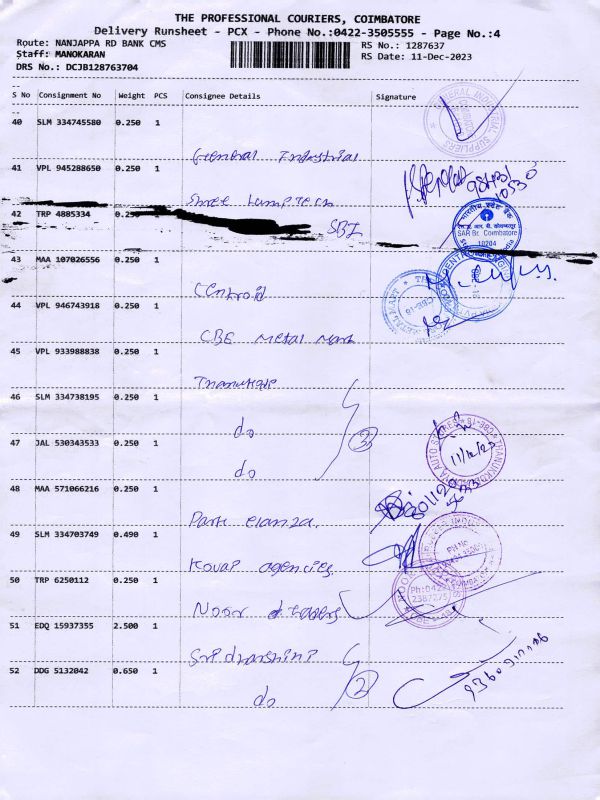 THE PROFESSIONAL COURIERS, COIMBATORE
Delivery Runsheet - PCX - Phone No.:0422-3505555 - Page No.:4
Route: NANJAPPA RD BANK CMS
RS No.: 1287637
Staff: MANOKARAN
RS Date: 11-Dec-2023
DRS No.: DCJB128763704
S No Consignment No Weight PCS Consignee Details Signature
40 SLM 334745580 0.250 1
General Industrial
41 VPL 945288650 0.250 1
Shree Lamp Tech
42 TRP 4885334 0.250
SBI
भारतीय स्टेट बैंक
SAR Br. Coimbatore
10204
43 MAA 107026556 0.250 1
Centroid
44 VPL 946743918 0.250 1
CBE Metal Mart
45 VPL 933988838 0.250 1
46 SLM 334738195 0.250 1
do
47 JAL 530343533 0.250 1
do
2
11/12/23
48 MAA 571066216 0.250 1
Park elanza.
49 SLM 334703749 0.490 1
Kovai agencies.
50 TRP 6250112 0.250 1
Noor traders
Ph:0422
2387275
51 EDQ 15937355 2.500 1
Sri dharshini
52 DDG 5132042 0.650 1
do
2